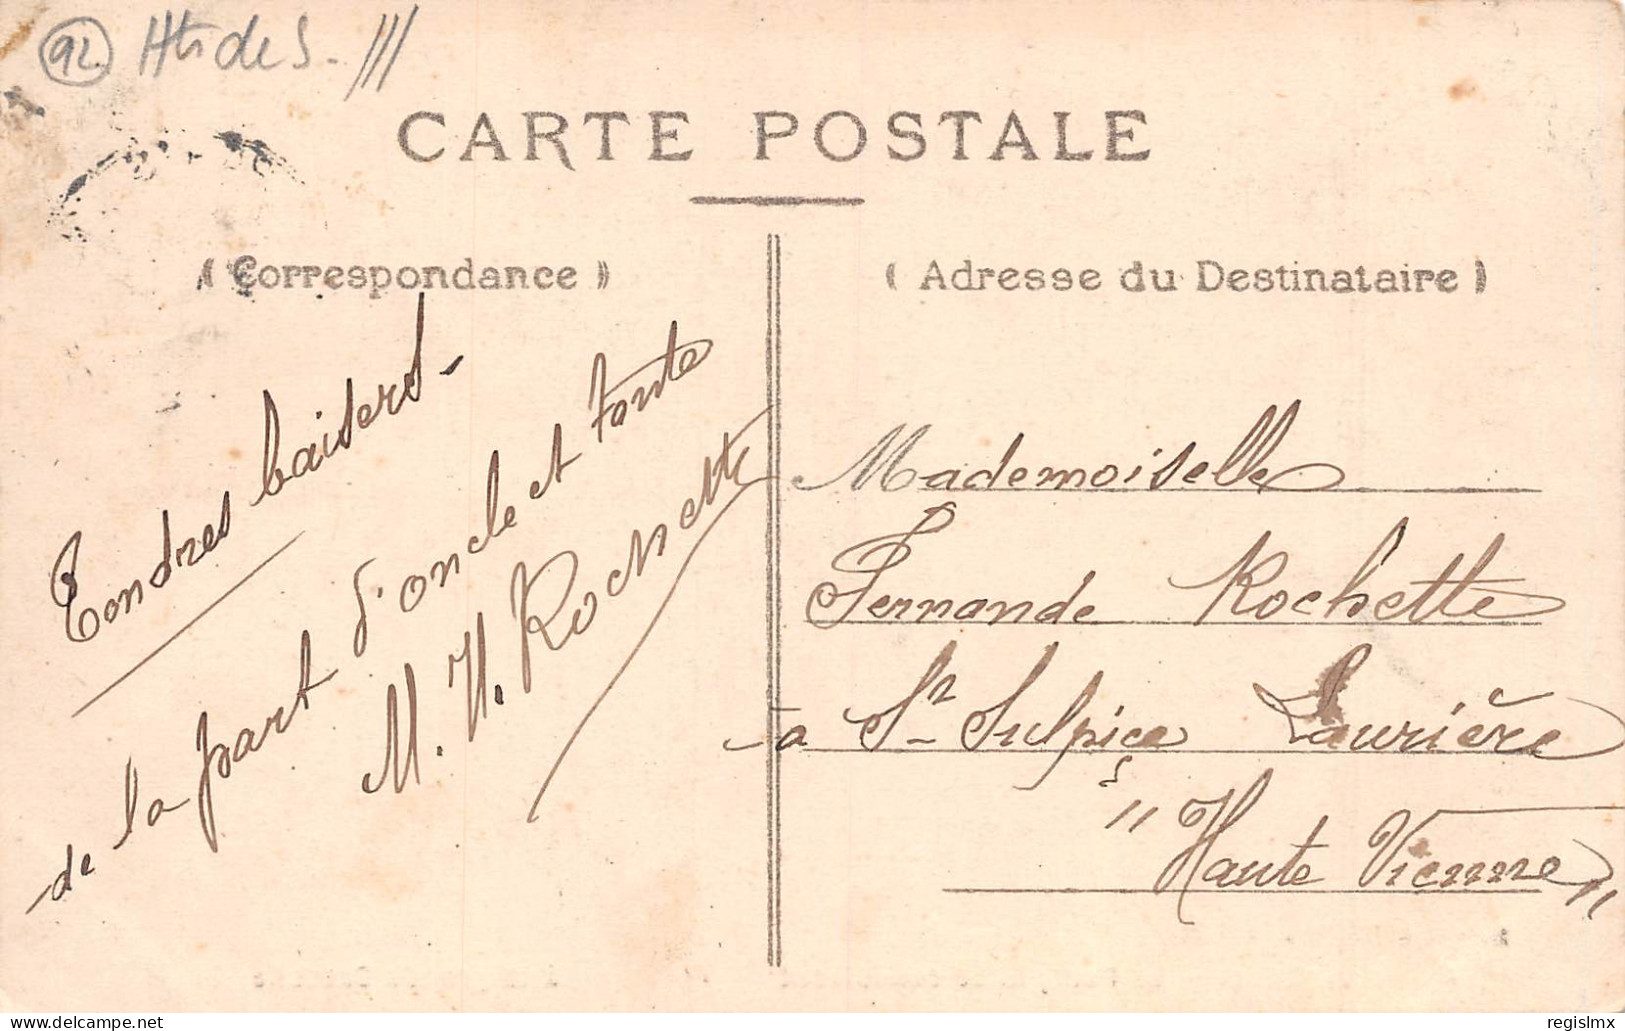 92
CARTE POSTALE
( Correspondance )
( Adresse du Destinataire )
Tendres baisers -
de la part d'oncle et tante
M. H. Rochette
Mademoiselle
Fernande Rochette
à St Sulpice Laurière
" Haute Vienne "
regislmx